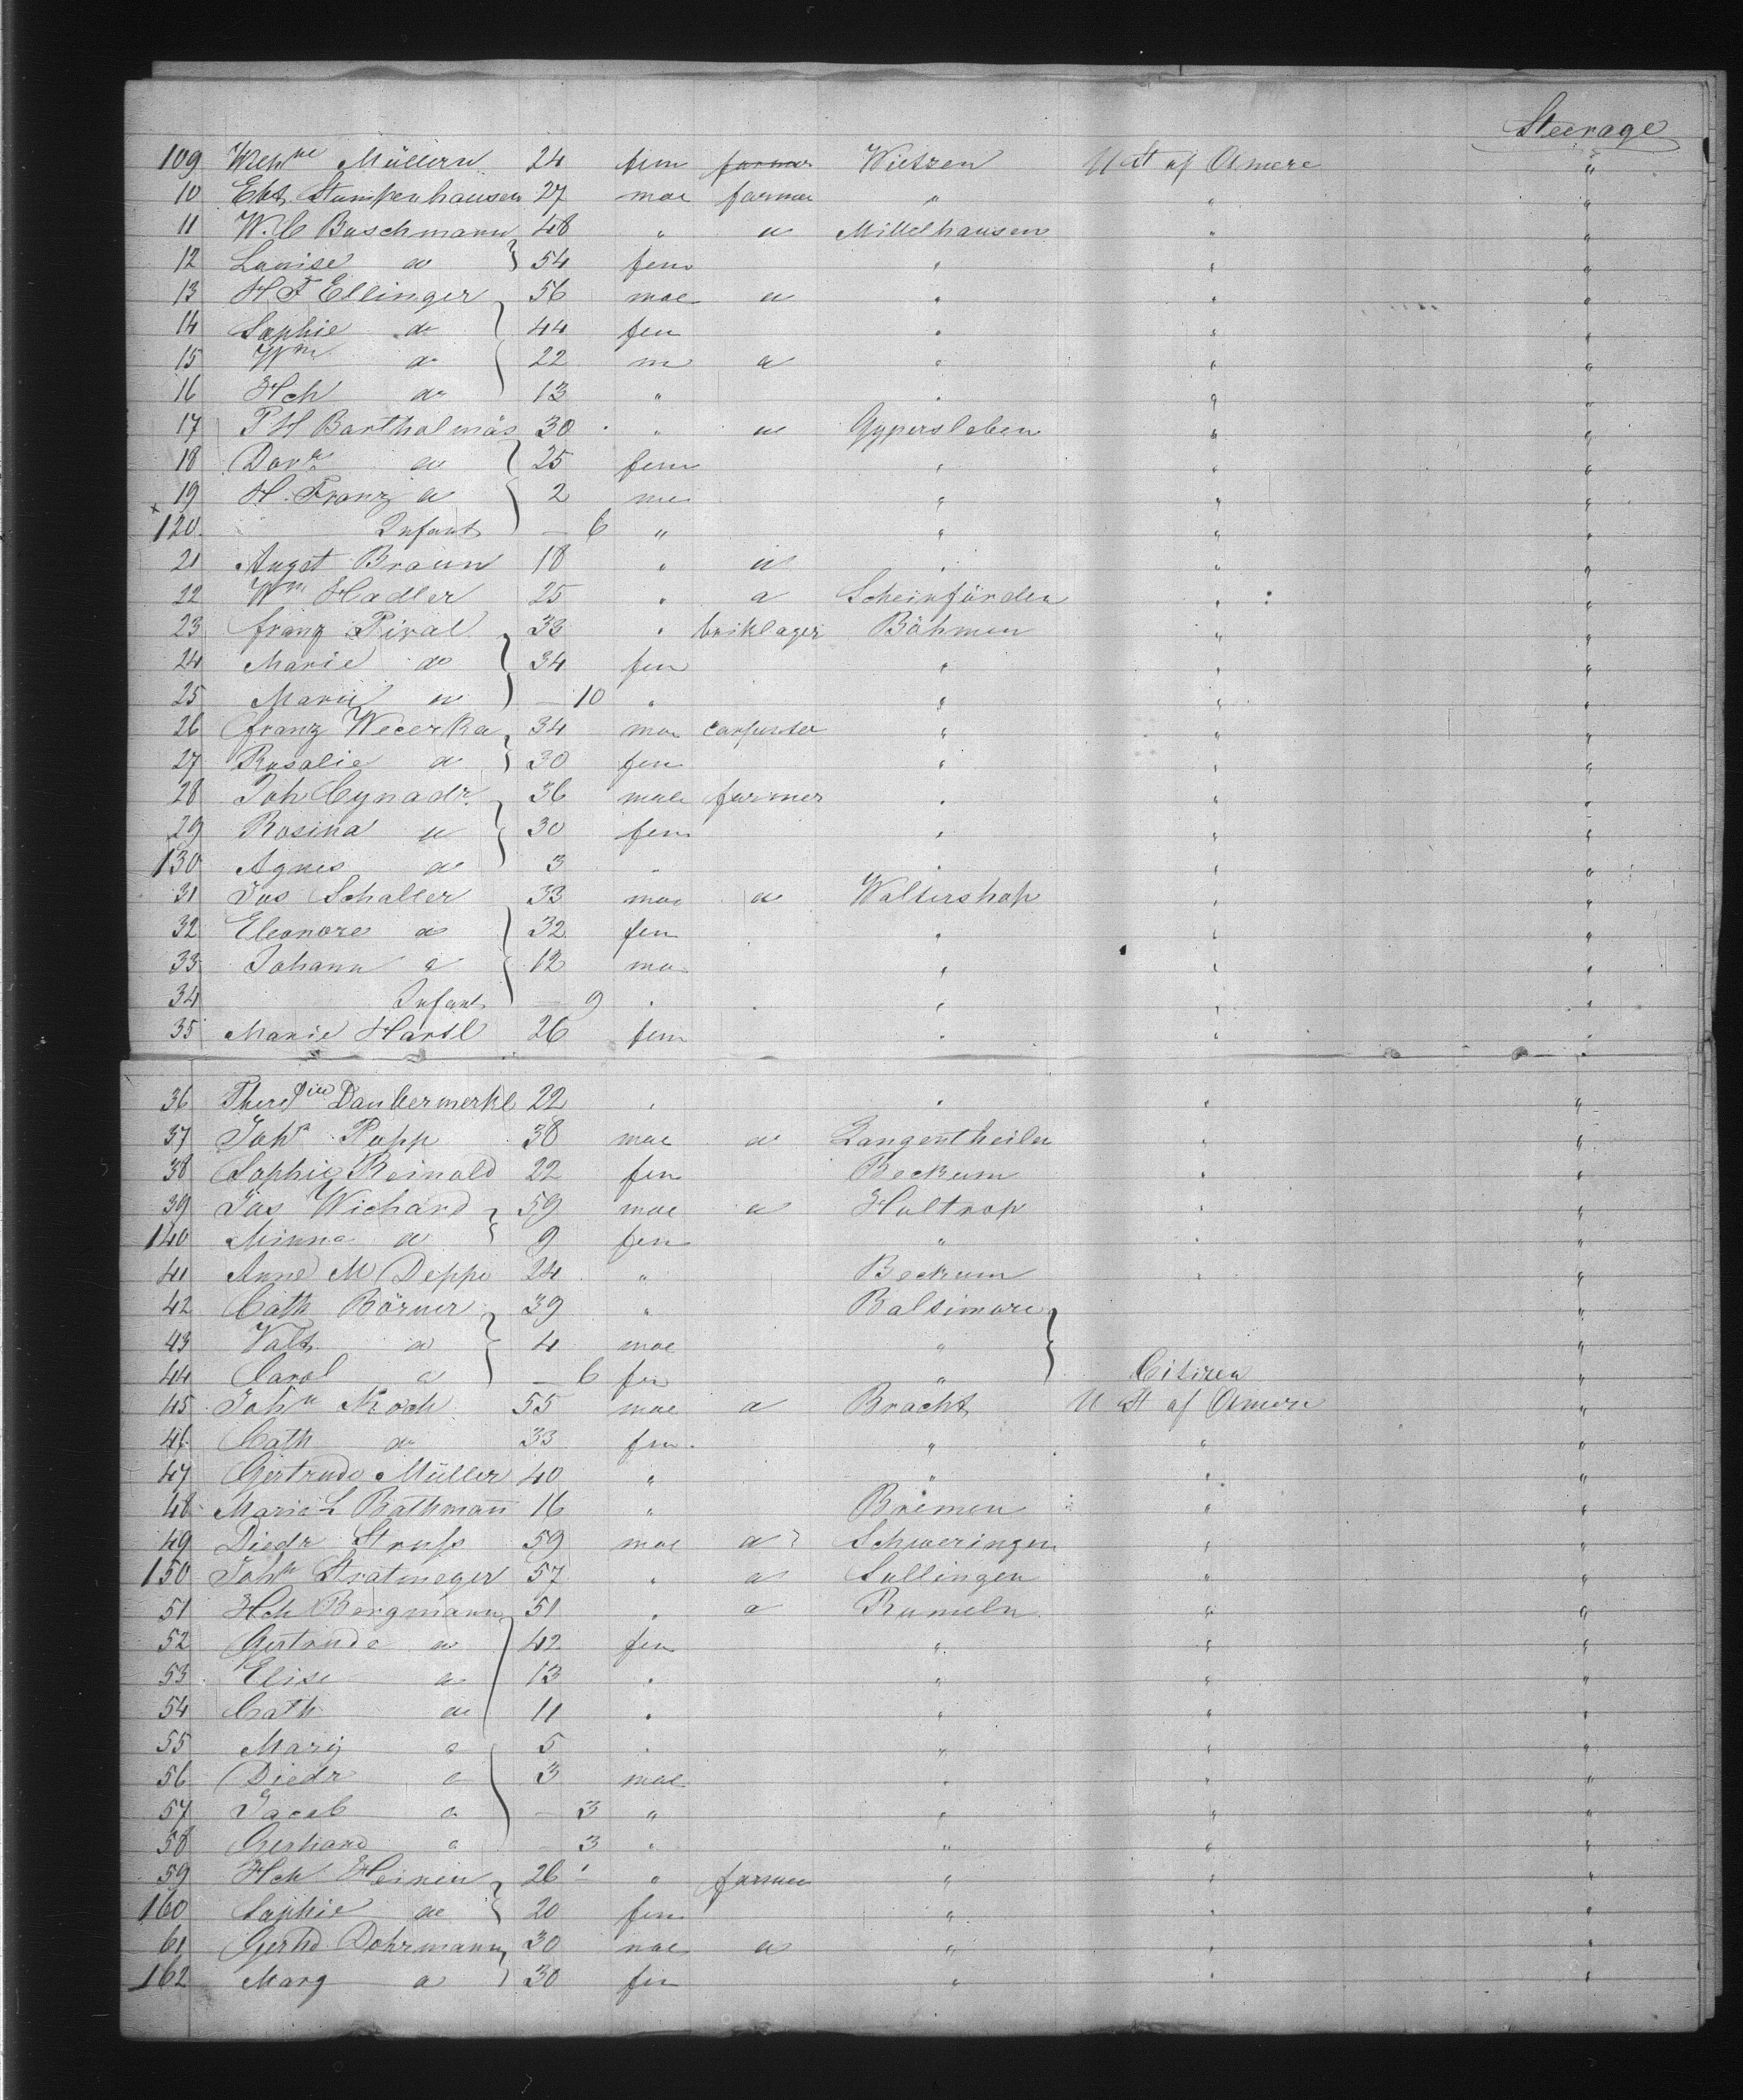 Steerage
109 Wilhne Müllern 24 fem farmer Wietzen U St of Amere "
10 Stumpenhausen 27 mae farmer " " "
11 W. C Buschmann 48 " a Mittelhausen " "
12 Louise a 54 fem " " "
13 H F Ellinger 56 mae a " " "
14 Sophie do 44 fem " " "
15 Wm a 22 m a " " "
16 Hch do 13 " " " "
17 P H Bartholmäs 30 " a Gypersleben " "
18 Dora a 25 fem " " "
19 H. Franz a 2 ma " " "
x 120 Infant — 6 " " " "
21 Augst Braun 18 " a " " "
22 Wm Hadler 25 " a " "
23 franz Pival 33 " briklager Böhmen " "
24 Marie do 34 fem " " "
25 Marie a — 10 " " " "
26 franz Wecerka 34 mae carpenter " " "
27 Rosalie a 30 fem " " "
28 Joh 36 male farmer " " "
29 Rosina a 30 fem " " "
130 Agnes a 3 " " " "
31 Jos Schaller 33 mae a Waltershof " "
32 Eleonore a 32 fem " " "
33 Johann a 12 ma " " "
34 Infant — 9 " " " "
35 Marie Hartl 26 fem " " "
36 Daubermerkl 22 " " " "
37 John Popp 38 mae a Langentheiln " "
38 Sophie Reinold 22 fem Beckum " "
39 Jos Wichard 59 mae a Holtrop " "
140 Minna a 9 fem " " "
41 Anne M Deppe 24 " Beckum " "
42 Cath Börner 39 " Baltimore "
43 Valt a 4 mae " "
44 Carol a — 6 fem " Citizen "
45 John Koch 55 mae a Bracht U St of Amere "
46 Cath a 33 fem " " "
47 Gertrude Müller 40 " " " "
48 Marie L Rathmann 16 " Bremen " "
49 Diedr Struss 59 mae a Schweringen " "
150 John Stratmeyer 57 " a Sullingen " "
51 Hch Bergmann 51 " a Rumeln " "
52 Gertrude a 42 fem " " "
53 Elise a 13 " " " "
54 Cath a 11 " " " "
55 Marg a 5 " " " "
56 Diedr a 3 mae " " "
57 Jacob a — 3 " " " "
58 Gerhard a — 3 " " " "
59 Hch Heinen 26 " farmer " " "
160 Sophie a 20 fem " " "
61 Gerhd Dohrmann 30 mae a " " "
162 Marg a 30 fem " "